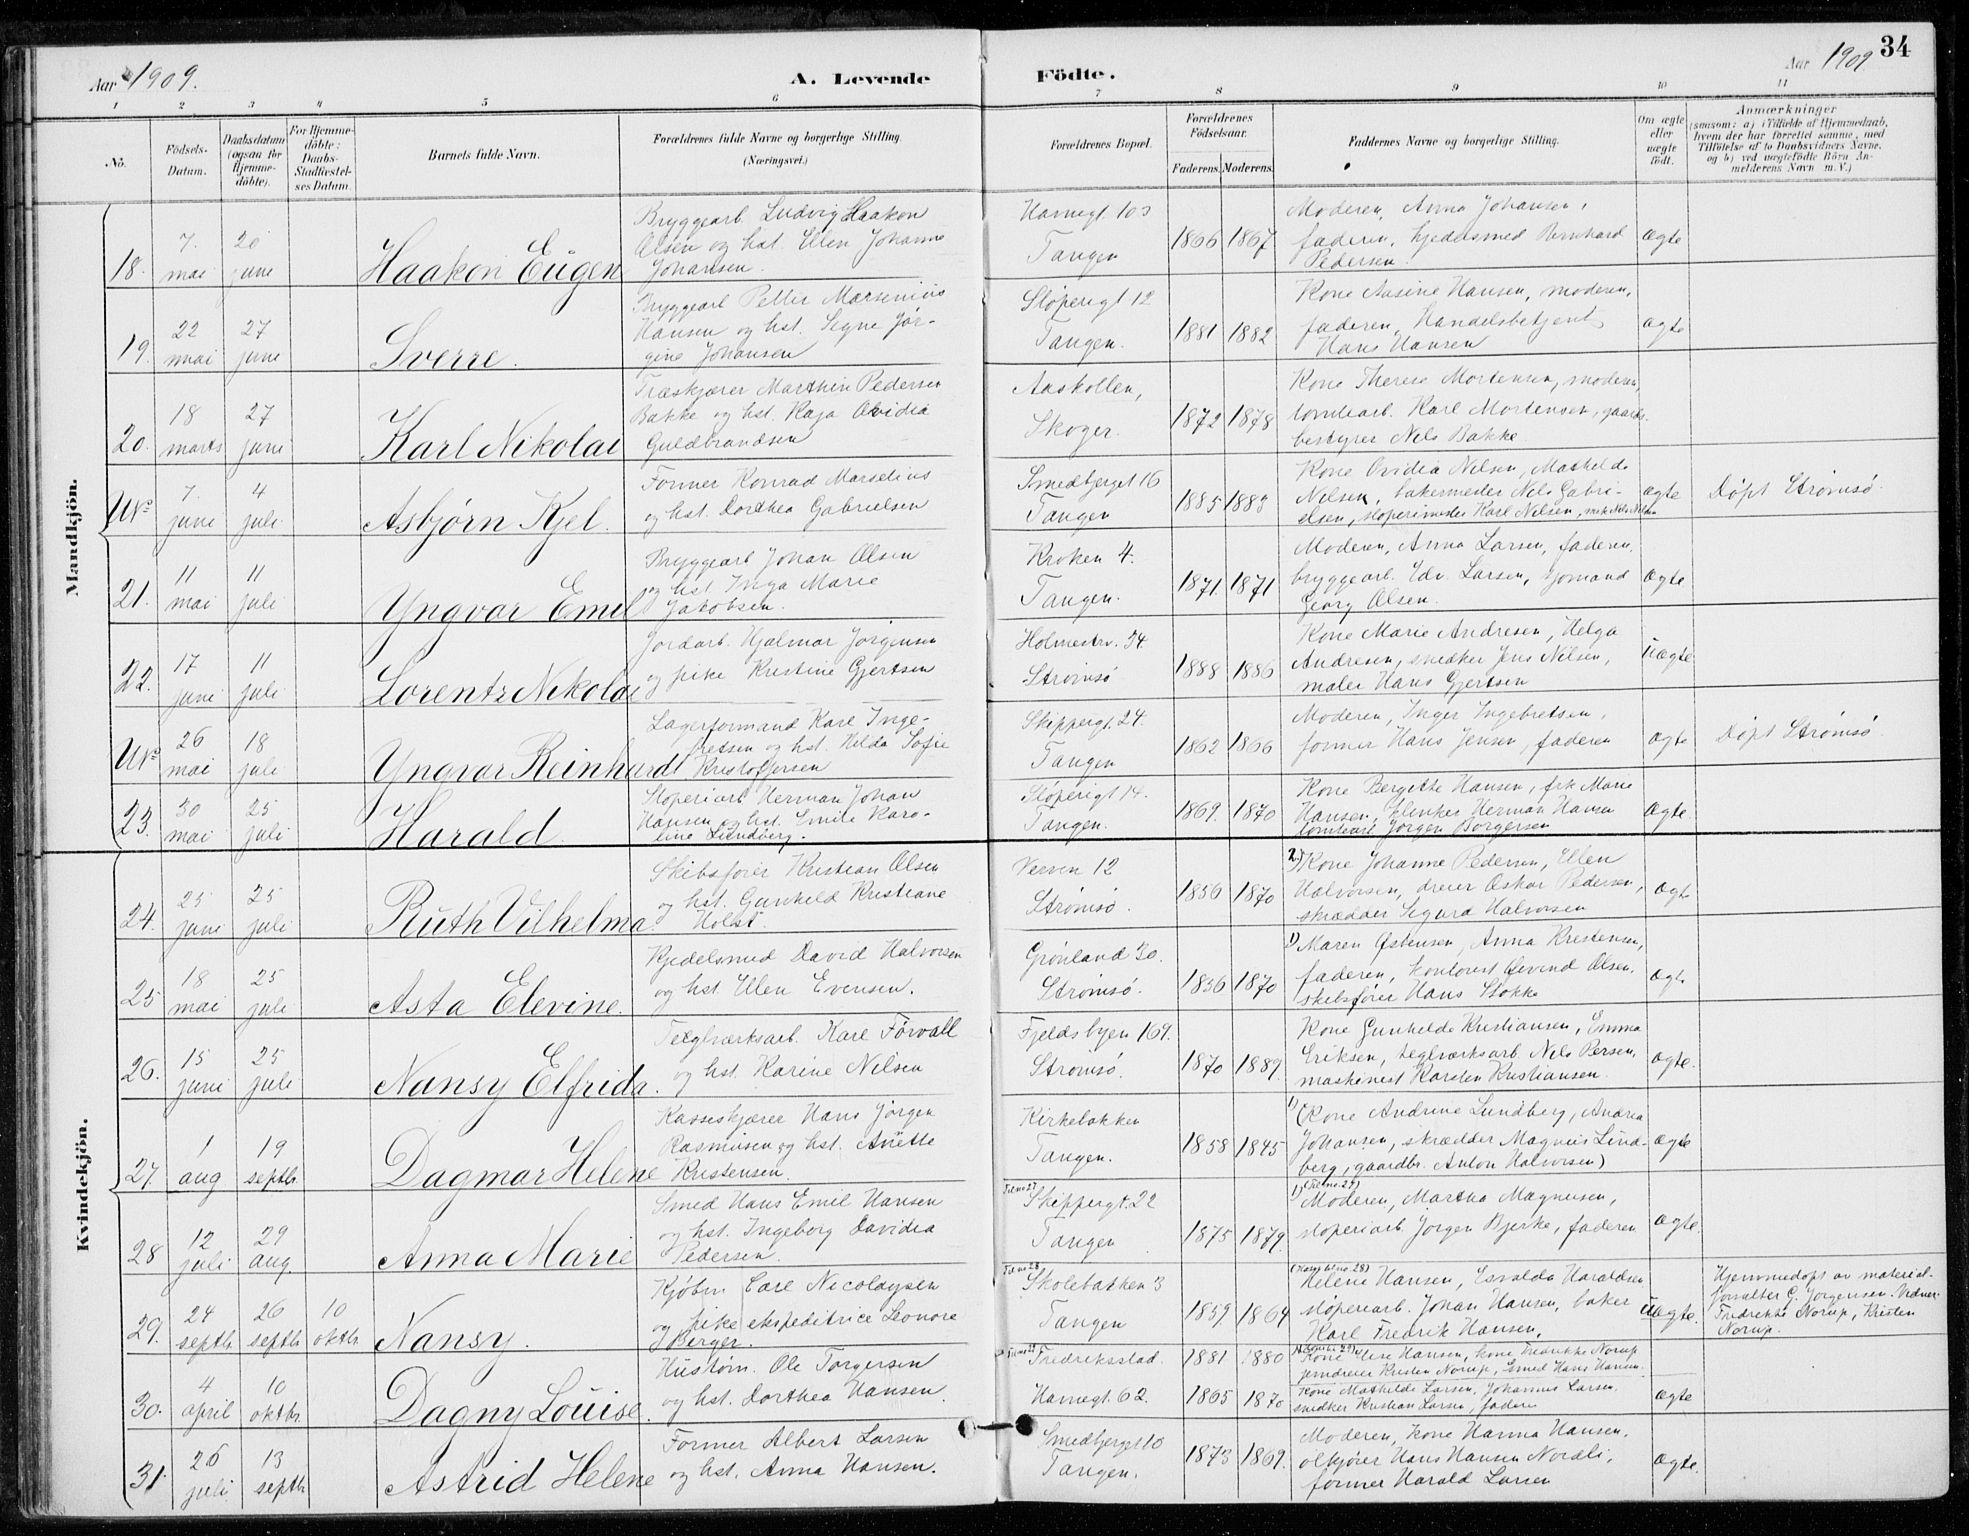 Aar 1909.
A. Levende
Födte.
Aar 1909
34
1 2 3 4 5 6 7 8 9 10 11
No.
Födsels-
Datum.
Daabsdatum
(ogsaa for
Hjemme-
döbte).
For Hjemme-
döbte:
Daabs-
Stadfæstel-
ses Datum.
Barnets fulde Navn.
Forældrenes fulde Navne og borgerlige Stilling.
(Næringsvei.)
Forældrenes Bopæl.
Forældrenes
Födselsaar.
Faderens. Moderens.
Faddernes Navne og borgerlige Stilling.
Om ægte
eller
uægte
födt.
Anmærkninger
(saasom: a) i Tilfælde af Hjemmedaab,
hvem der har forrettet samme, med
Tilföielse af to Daabsvidners Navne,
og b) ved uægtefödte Börn An-
melderens Navn m. V.)
Mandkjön.
18. 7. mai 20 june Haakon Eugen
Bryggearb Ludvig Haakon
Olsen og hst. Ellen Johanne
Johansen.
Havnegt. 103
Tangen
1866 1867
Moderen, Anna Johansen,
faderen, kjedelsmed Bernhard
Pedersen.
ægte
19. 22 mai 27 june Sverre.
Bryggearb Petter Marsenius
Hansen og hst. Signe Jør-
gine Johansen
Støperigt 12
Tangen.
1881 1882
Kone Aasine Hansen, moderen,
faderen, Handelsbetjent
Hans Hansen
ægte
20. 18 marts 27 june Karl Nikolai
Træskjærer Marthin Pedersen
Bakke og hst. Kaja Ovidia
Guldbrandsen
Aaskollen,
Skoger.
1872 1878
Kone Therese Mortensen, moderen,
tomtearb. Karl Mortensen, gaards-
bestyrer Nils Bakke.
Un 7. juni 4 juli Asbjørn Kjel.
Former Konrad Marselius
og hst. Dorthea Gabrielsen
Smedbjerget 16
Tangen
1885 1883
Kone Ovidia Nilsen, Mathilde
Nilsen, bakermester Nils Gabri-
elsen, støperimester Karl Nilsen, Nils Nilsen
ægte
Døpt Strømsø.
21. 11 mai 11 juli Yngvar Emil
Bryggearb Johan Olsen
og hst Inga Marie
Jakobsen.
Kroken 4.
Tangen.
1871. 1871
Moderen, Anna Larsen, faderen,
bryggearb. Edv. Larsen, sjømand
Georg Olsen.
ægte
22. 17 juni 11 juli Lorentz Nikolai
Jordarb. Hjalmar Jörgensen
og pike Kristine Gjertsen
Holmestrv. 54.
Strømsø
1888 1886
Kone Marie Andresen, Helga
Andresen, snedker Jens Nilsen,
maler Hans Gjertsen
uægte
Un 26 mai 18 juli Yngvar Reinhardt
Lagerformand Karl Inge-
bretsen og hst. Hilda Sofie
Kristoffersen
Skippergt. 24.
Tangen
1862 1866
Moderen, Inger Ingebretsen,
former Hans Jensen, faderen
ægte
Døpt Strømsø.
23. 30 mai 25 juli Harald
Støperiarb Herman Johan
Hansen og hst. Emilie Karo-
line Lundberg.
Støperigt 14.
Tangen.
1869. 1870
Kone Bergitte Hansen, frk Marie
Hansen, klinker Herman Hansen
tomtearb Jørgen Borgersen
ægte.
Kvindekjön.
24. 25 juni 25 juli Ruth Vilhelma
Skibsfører Kristian Olsen
og hst. Gunhild Kristiane
Holst.
Verven 12
Strømsø.
1856 1870
2) Kone Johanne Pedersen, Ellen
Halvorsen, dreier Oskar Pedersen,
skrædder Sigurd Halvorsen
ægte
25 18 mai 25 juli Asta Elevine.
Kjedelsmed David Halvorsen
og hst. Ellen Evensen.
Grønland 30.
Strømsø.
1856 1870
1) Maren Østensen, Anna Kristensen,
faderen, kontorist Øivind Olsen,
skibsfører Hans Stokke
ægte
26. 15 juni 25 juli Nansy Elfrida.
Teglværksarb. Karl Förvall
og hst. Karine Nilsen
Fjeldsbyen 169.
Strømsø.
1870 1889.
Kone Gunhilde Kristiansen, Emma
Eriksen, teglværksarb. Nils Persen,
maskinist Karsten Kristiansen.
ægte.
27. 1 aug 19 septbr. Dagmar Helene
Hans Jørgen
Rasmusen og hst. Anette
Kristensen.
Kirkebakken
Tangen.
1858 1845
1) (Kone Andrine Lundberg, Andrea
Johansen, skrædder Magnus Lund-
berg, gaardbr. Anton Halvorsen)
ægte
28 12 juli 29 aug. Anna Marie
Smed Hans Emil Hansen
og hst. Ingeborg Davidia
Pedersen.
Til no 27
Skippergt. 22
Tangen
1875 1879.
1) (Til no. 27)
Moderen, Martha Magnusen,
støperiarb Jørgen Bjerke, faderen
ægte.
29. 24 septbr. 26 septbr. 10 oktbr. Nansy.
Kjøbm Carl Nicolaysen
og pike ekspeditrice Leonore
Berger.
Til no 28
Skolebakken 3
Tangen
1859 1864
Helene Hansen, Esvalda Haraldsen
støperiarb. Johan Hansen, baker
Karl Fredrik Hansen,
uægte.
Hjemmedøpt av material-
forvalter C. Jørgensen. Vidner
Fredrikke Norup, Kristen
Norup.
30. 4 april 10 oktbr. Dagny Louise.
Hustøm. Ole Torgersen
og hst. Dorthea Hansen.
Fredriksstad. 1881 1880
Havnegt. 62. 1865 1870
Kone Elise Hansen, kone Fredrikke Norup
jerndreier Kristen Norup, Smed Hans Hansen.
Kone Mathilde Larsen, Johannes Larsen,
snedker Kristian Larsen, faderen
ægte
31. 26 juli. 13 septbr Astrid Helene
Former Albert Larsen
og hst. Anna Hansen.
Smedbjerget 10
Tangen.
1873 1869.
Moderen, kone Hanna Hansen,
ølkjører Hans Hansen Nordli,
former Harald Larsen
ægte.